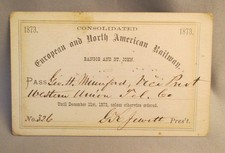 1873. CONSOLIDATED 1873.
European and North American Railway.
BANGOR AND ST. JOHN.
PASS Geo. H. Mumford, Vice Prest
Western Union Tel. Co
Until December 31st, 1873, unless otherwise ordered.
No. 336 Pres't.